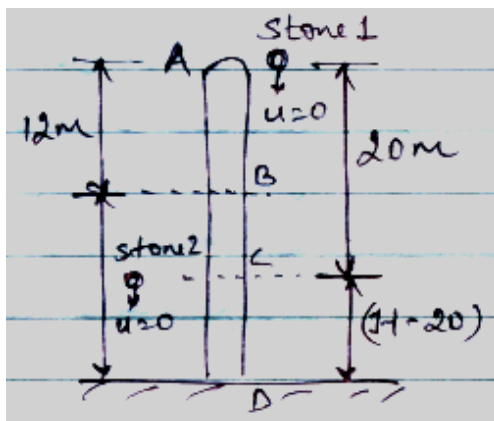 Stone 1
A
u=0
12m
20m
B
Stone 2
C
u=0
(H-20)
D